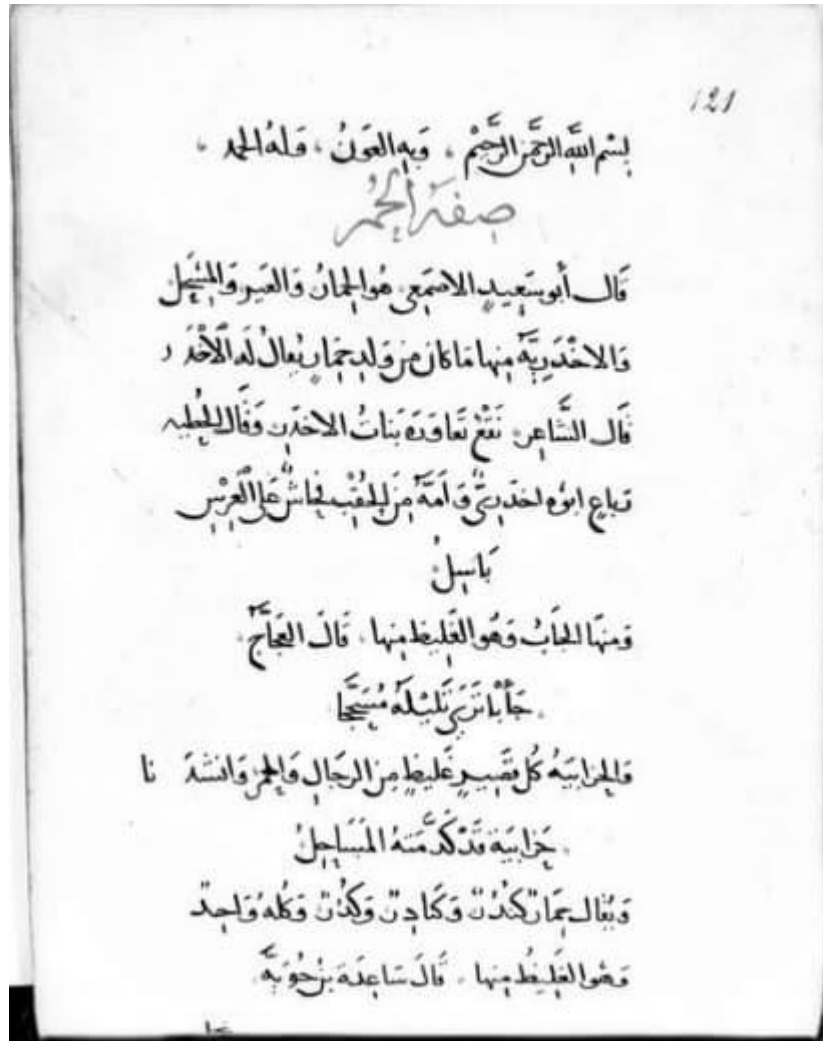 121
بِسْمِ اللَّهِ الرَّحْمَنِ الرَّحِيمْ ، وَبِهِ العَوْنُ ، وَلهُ الحمد ،
صِفَةُ الحُمُر
قَال أَبُو سَعِيدٍ الاصْمَعي هُوَ الحِمَارُ وَالعَير وَالمِسْحَل
وَالاخْدَرِيَّةُ مِنهَا مَا كَانَ مِن وَلدِ حِمَارٍ يُقالُ لَهُ الْأخْدَر
قَال الشَّاعِر نَقْعٌ تَعَاوَرَهُ بَنَاتُ الاخدَرِ وَقَال الحُطيه
رَباعٍ ابُوه اخدَرِيٌّ وَأمّهُ مِنَ الحُقْبِ فحاش عَلَى الْعِرْسِ
بَاسِلُ
وَمِنهَا الجأبُ وَهُو الغَلِيظ مِنهَا ، قَالَ العَجَّاج
، جَأْبًا تَرَى تَلِيلَهُ مُسَحَّجَا
وَالحَزَابِيَةُ كُل قصِيرٍ غَليظٍ مِنَ الرجَالِ وَالحُمُر وَانشَدَ نا
، حَزَابِيَة قَدْ كَدَّمَتهُ المَسَاحِلُ
وَيُقال حِمَارٌ كُنْدُرٌ وَكُنَادِرٌ وَكُدُرٌّ وَكُلهُ وَاحِدٌ
وَهُوَ الغَلِيظُ مِنهَا ، قَالَ سَاعِدَة بن جُؤيَّة